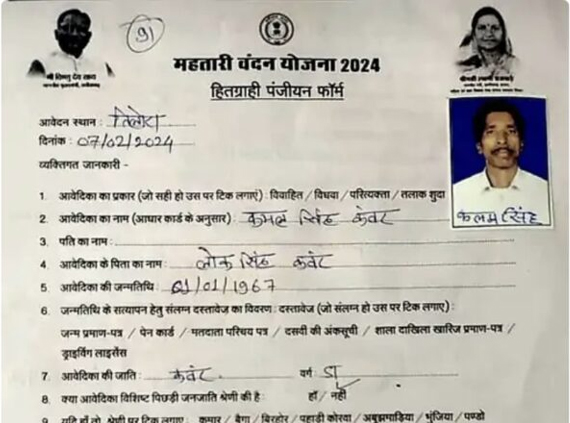 91
महतारी वंदन योजना 2024
हितग्राही पंजीयन फॉर्म
आवेदन स्थान :
दिनांक : 07/02/2024
व्यक्तिगत जानकारी -
कलम सिंह
1. आवेदिका का प्रकार (जो सही हो उस पर टिक लगाएं) : विवाहित / विधवा / परित्यक्ता / तलाक शुदा
2. आवेदिका का नाम (आधार कार्ड के अनुसार) : कमल सिंह कंवर
3. पति का नाम :
4. आवेदिका के पिता का नाम : लोक सिंह कंवर
5. आवेदिका की जन्मतिथि : 01/01/1967
6. जन्मतिथि के सत्यापन हेतु संलग्न दस्तावेज का विवरण : दस्तावेज (जो संलग्न हो उस पर टिक लगाए) :
जन्म प्रमाण-पत्र / पेन कार्ड / मतदाता परिचय पत्र / दसवी की अंकसूची / शाला दाखिला खारिज प्रमाण-पत्र /
ड्राइविंग लाइसेंस
7. आवेदिका की जाति : कंवर वर्ग
8. क्या आवेदिका विशिष्ट पिछड़ी जनजाति श्रेणी की है : हाँ / नहीं
9. यदि हाँ तो, श्रेणी पर टिक लगाएं : कमार / बैगा / बिरहोर / पहाड़ी कोरवा / अबुझमाड़िया / भुंजिया / पण्डो